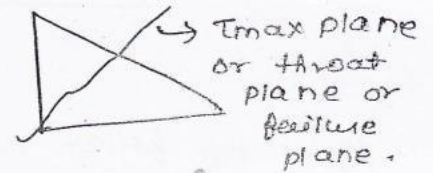 → τmax plane
or throat
plane or
failure
plane.